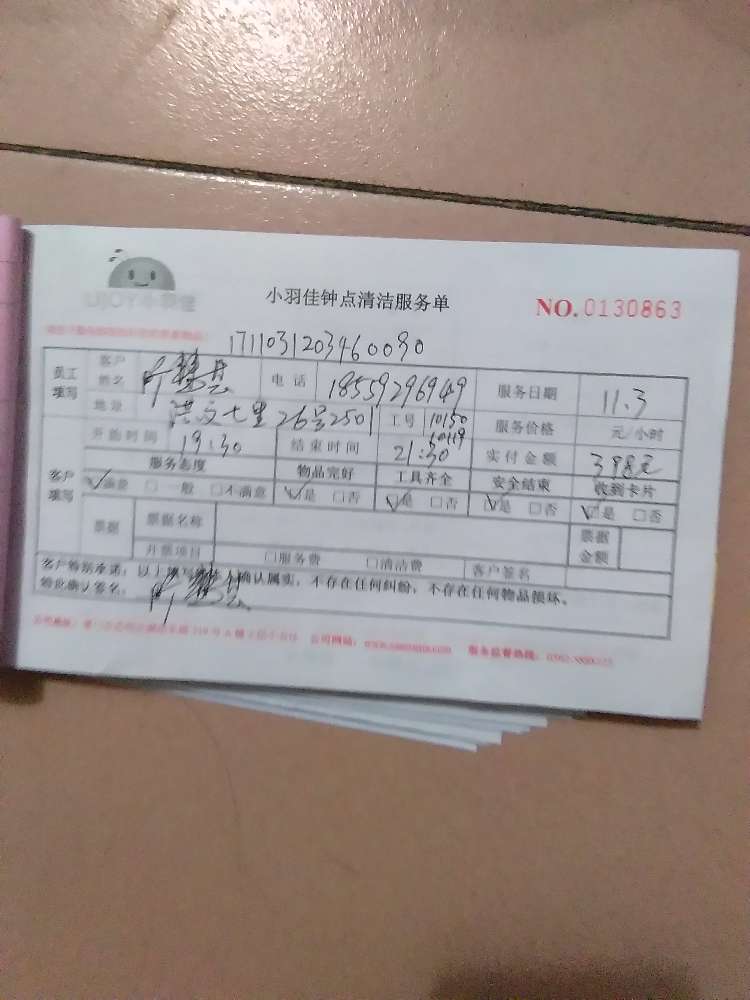 UJOY小羽佳
小羽佳钟点清洁服务单
NO.0130863
1711031203460090
员工填写 客户姓名 电话 18559296949 服务日期 11.3
地址 洪文七里26号2501 工号 10150 服务价格 元/小时
60119
开始时间 19:30 结束时间 21:30 实付金额 398元
客户填写 服务态度 物品完好 工具齐全 安全结束 收到卡片
☑满意 □一般 □不满意 ☑是 □否 ☑是 □否 ☑是 □否 ☑是 □否
票据 票据名称 票据金额
开票项目 □服务费 □清洁费 客户签名
客户特别承诺：以上填写 确认属实，不存在任何纠纷，不存在任何物品损坏。
特此确认签名：
公司网站： 服务监督热线：